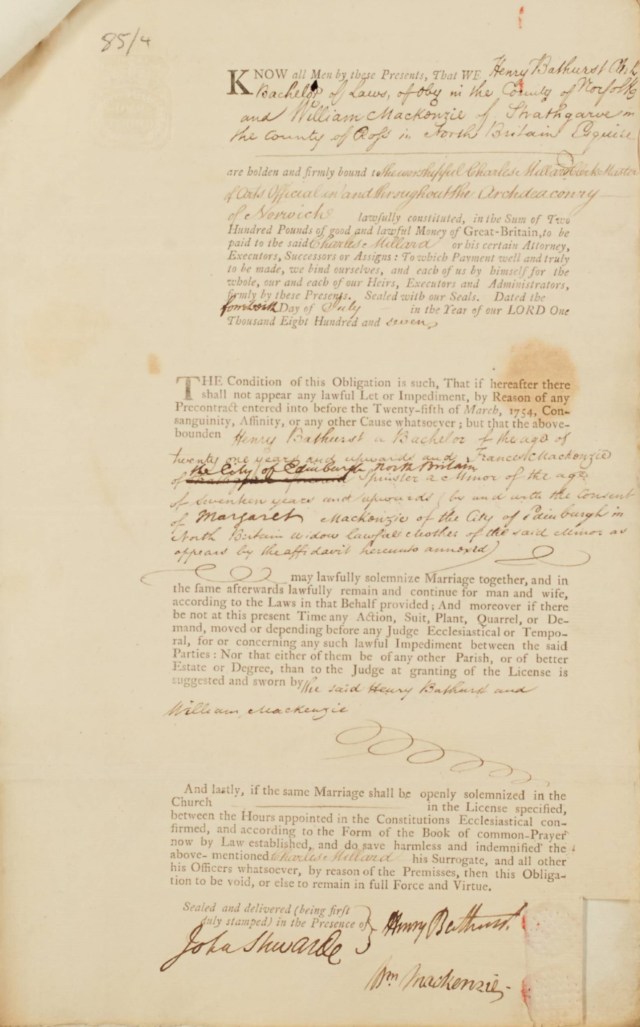 85/4
KNOW all Men by these Presents, That WE Henry Bathurst Clerk
Bachelor of Laws, of Oby in the County of Norfolk
and William Mackenzie of Strathgarve in
the County of Ross in North Britain Esquire
are holden and firmly bound to the worshipful Charles Millard Clerk Master
of Arts Official in and throughout the Archdeaconry
of Norwich lawfully constituted, in the Sum of Two
Hundred Pounds of good and lawful Money of Great-Britain, to be
paid to the said Charles Millard or his certain Attorney,
Executors, Successors or Assigns: To which Payment well and truly
to be made, we bind ourselves, and each of us by himself for the
whole, our and each of our Heirs, Executors and Administrators,
firmly by these Presents. Sealed with our Seals. Dated the
Day of July in the Year of our LORD One
Thousand Eight Hundred and seven,
THE Condition of this Obligation is such, That if hereafter there
shall not appear any lawful Let or Impediment, by Reason of any
Precontract entered into before the Twenty-fifth of March, 1754, Con-
sanguinity, Affinity, or any other Cause whatsoever; but that the above-
bounden Henry Bathurst a Bachelor of the age of
twenty one years and upwards and Frances Mackenzie
the City of Edinburgh North Britain
of Spinster a Minor of the age
of Seventeen years and upwards (by and with the Consent
of Margaret Mackenzie of the City of Edinburgh in
North Britain widow lawful Mother of the said Minor as
appears by the affidavit hereunto annexed)
may lawfully solemnize Marriage together, and in
the same afterwards lawfully remain and continue for man and wife,
according to the Laws in that Behalf provided; And moreover if there
be not at this present Time any Action, Suit, Plant, Quarrel, or De-
mand, moved or depending before any Judge Ecclesiastical or Tempo-
ral, for or concerning any such lawful Impediment between the said
Parties: Nor that either of them be of any other Parish, or of better
Estate or Degree, than to the Judge at granting of the License is
suggested and sworn by the said Henry Bathurst and
William Mackenzie
And lastly, if the same Marriage shall be openly solemnized in the
Church in the License specified,
between the Hours appointed in the Constitutions Ecclesiastical con-
firmed, and according to the Form of the Book of common-Prayer
now by Law established, and do save harmless and indemnified the
above-mentioned Charles Millard his Surrogate, and all other
his Officers whatsoever, by reason of the Premisses, then this Obliga-
tion to be void, or else to remain in full Force and Virtue.
Sealed and delivered (being first
duly stamped) in the Presence of
Henry Bathurst
John Steward
Wm Mackenzie